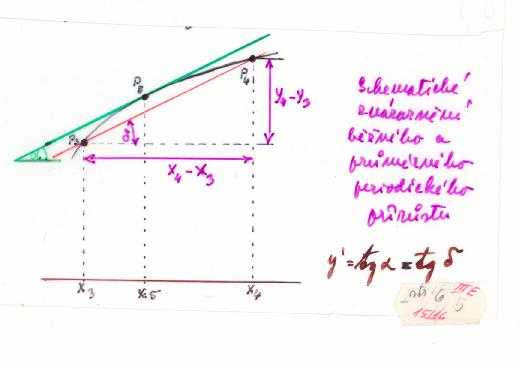 P₅
P₄
P₃
δ
α
y₄-y₃
x₄-x₃
x₃
x₅
x₄
Schematické
znázornění
běžného a
průměrného
periodického
přírůstu
y' = tg α = tg δ
6 III E
15/16 5